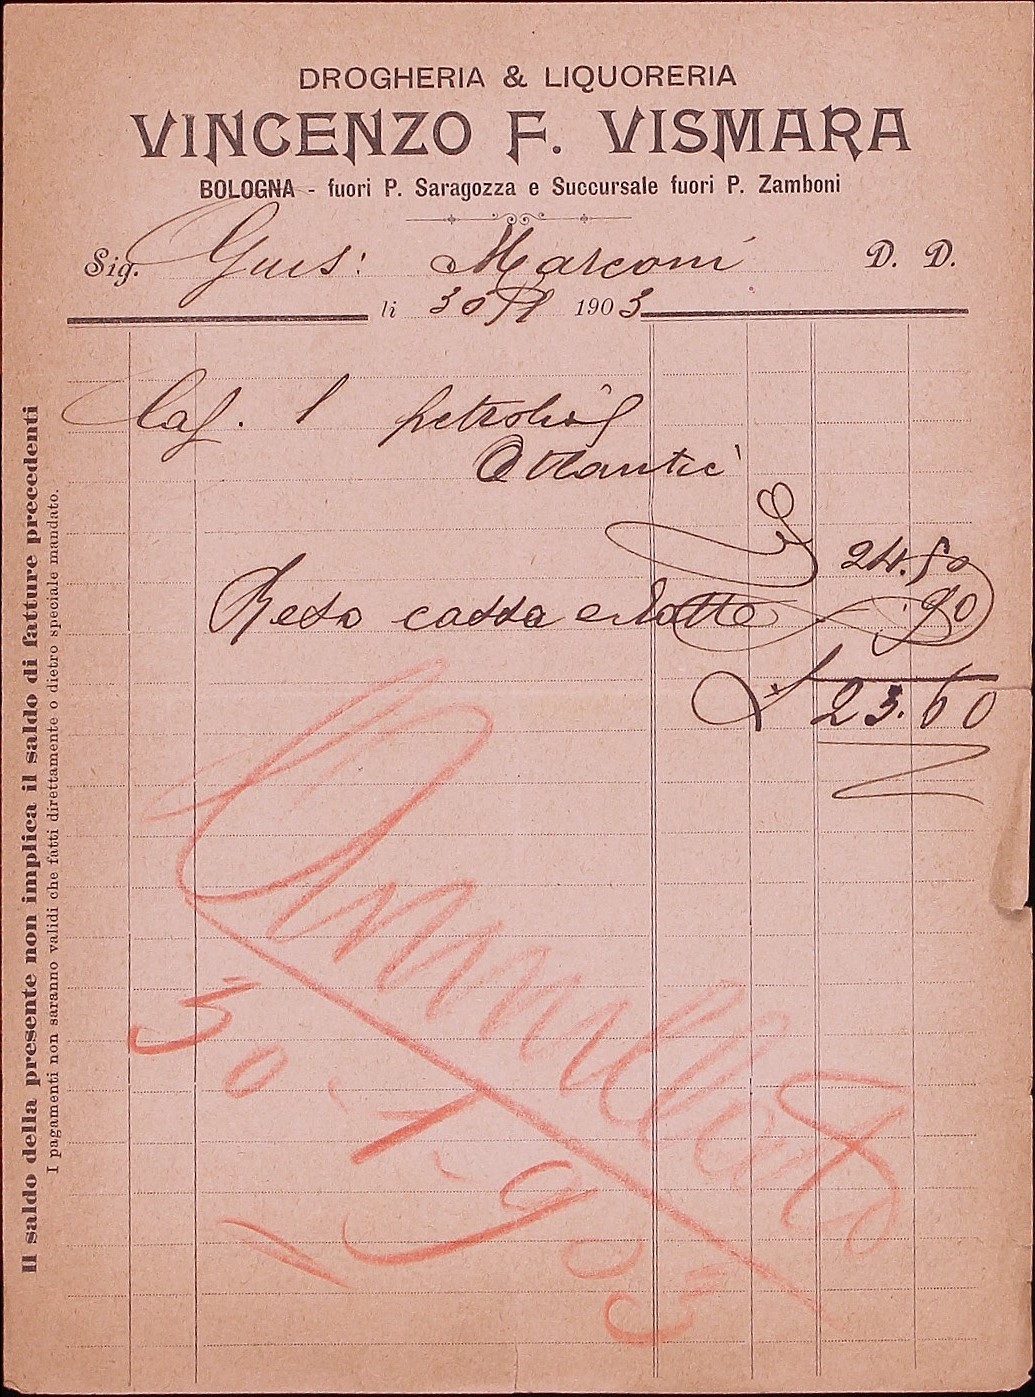 DROGHERIA & LIQUORERIA
VINCENZO F. VISMARA
BOLOGNA - fuori P. Saragozza e Succursale fuori P. Zamboni
Sig. Gius: Marconi D. D.
li 30 1903
1 petrolio
Atlantic
24.50
Reso cassa e latte 90
£ 23.60
Annullato
30-1-903
Il saldo della presente non implica il saldo di fatture precedenti
I pagamenti non saranno validi che fatti direttamente o dietro speciale mandato.